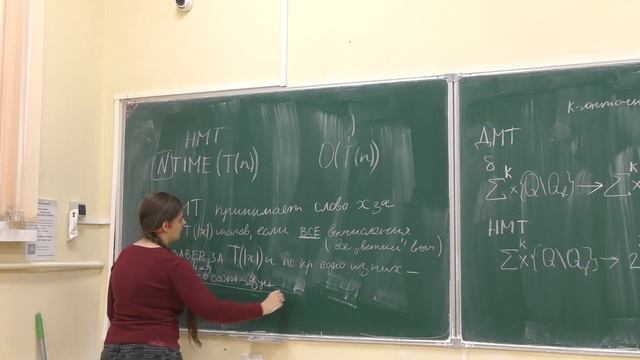 НМТ
[N]TIME(T(n)) O(T(n))
МТ принимает слово x за
T(|x|) шагов, если ВСЕ вычисления
(все „ветви“
ЗАВЕР. ЗА T(|x|) и по кр одно из них –
в сост
к-ленточн
ДМТ
δ
Σ^k x{Q\Q_f} → Σ
НМТ
Σ^k x{Q\Q_f} → 2